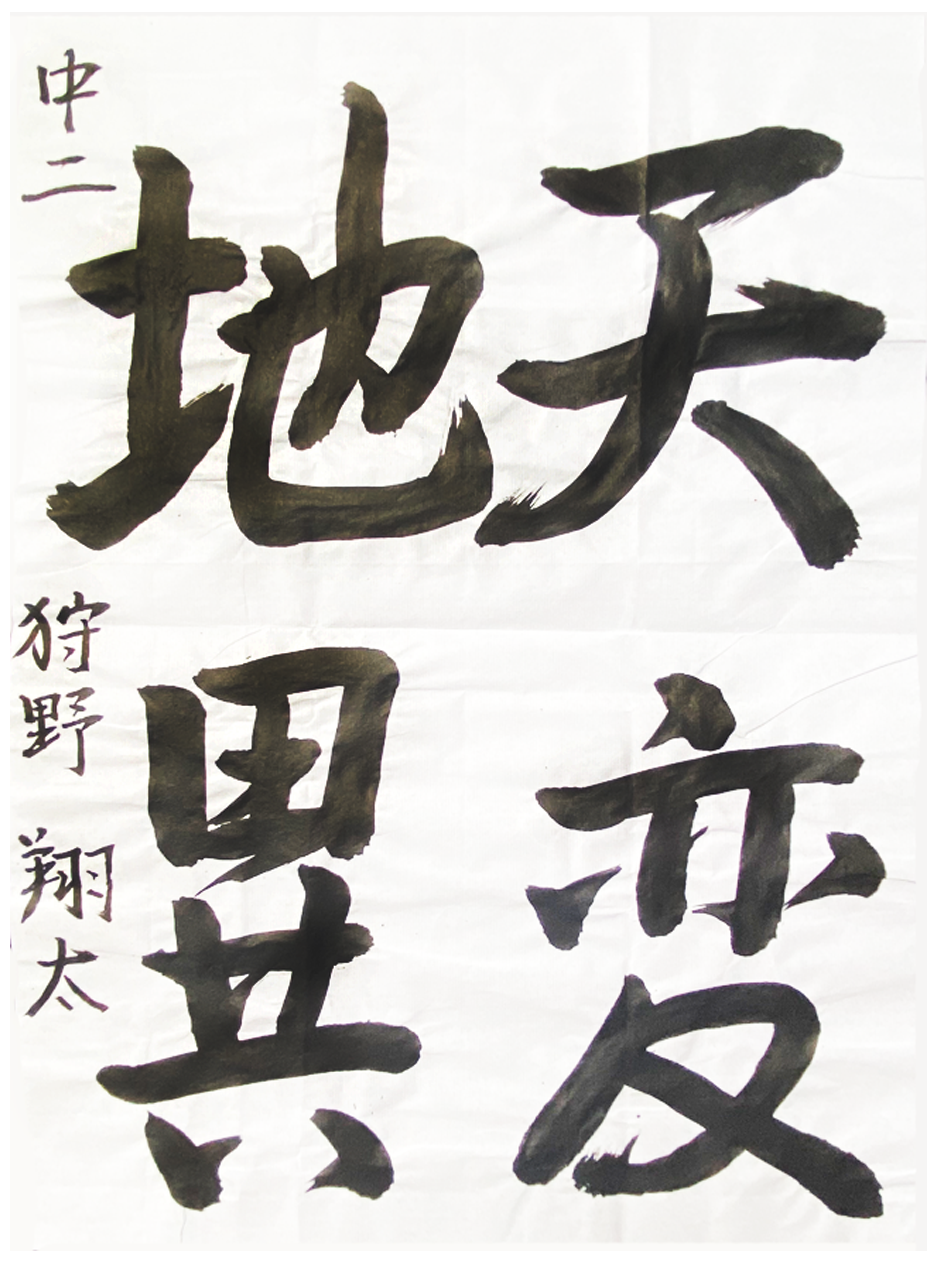 天変
地異
中二 狩野 翔太